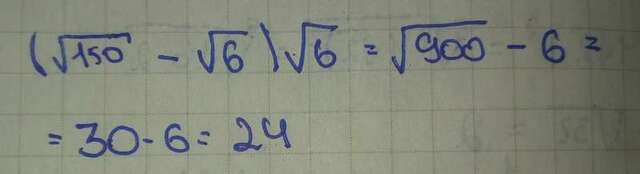 (√150 - √6)√6 = √900 - 6 =
= 30 - 6 = 24